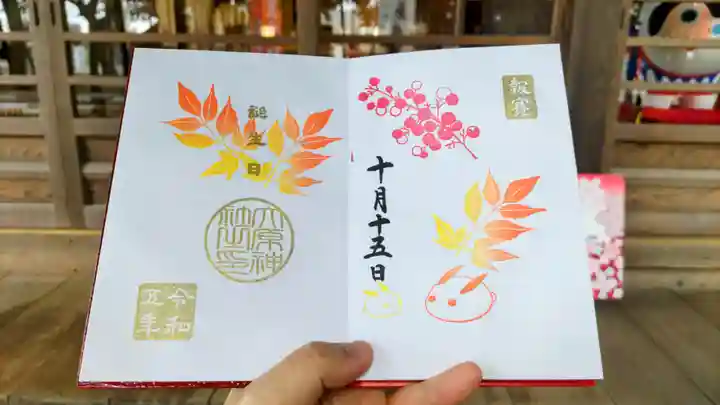 報賽
十月十五日
誕生日
大原神
社之印
令和
五年